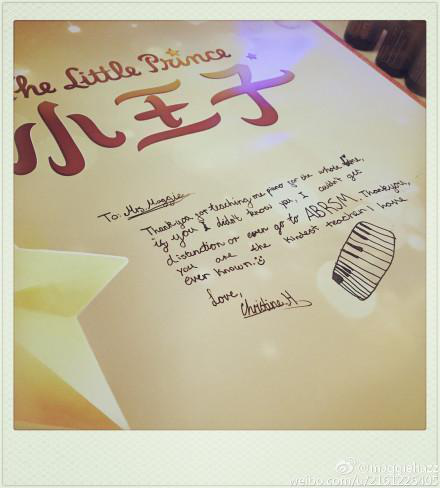 The Little Prince
小王子
To: Mrs. Maggie
Thank you for teaching me piano for the whole time,
if you I didn't know you, I couldn't get
distinction or even go to ABRSM. Thank you,
you are the kindest teacher I have
ever known.
Love,
Christine.H
@maggiehazz
weibo.com/u/2161225405